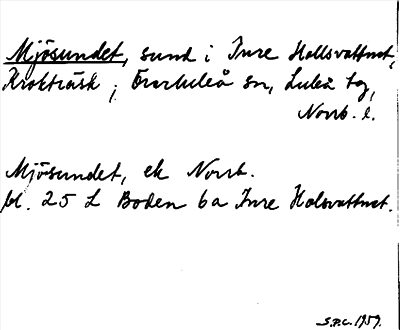 Mjösundet, sund i Inre Hallsvattnet,
Kroktrask, Överluleå sn, Luleå tg,
Norrb. l.
Mjösundet, ek Norrb.
bl. 25 L Boden 6a Inre Holsvattnet.
S.P.C. 1959.